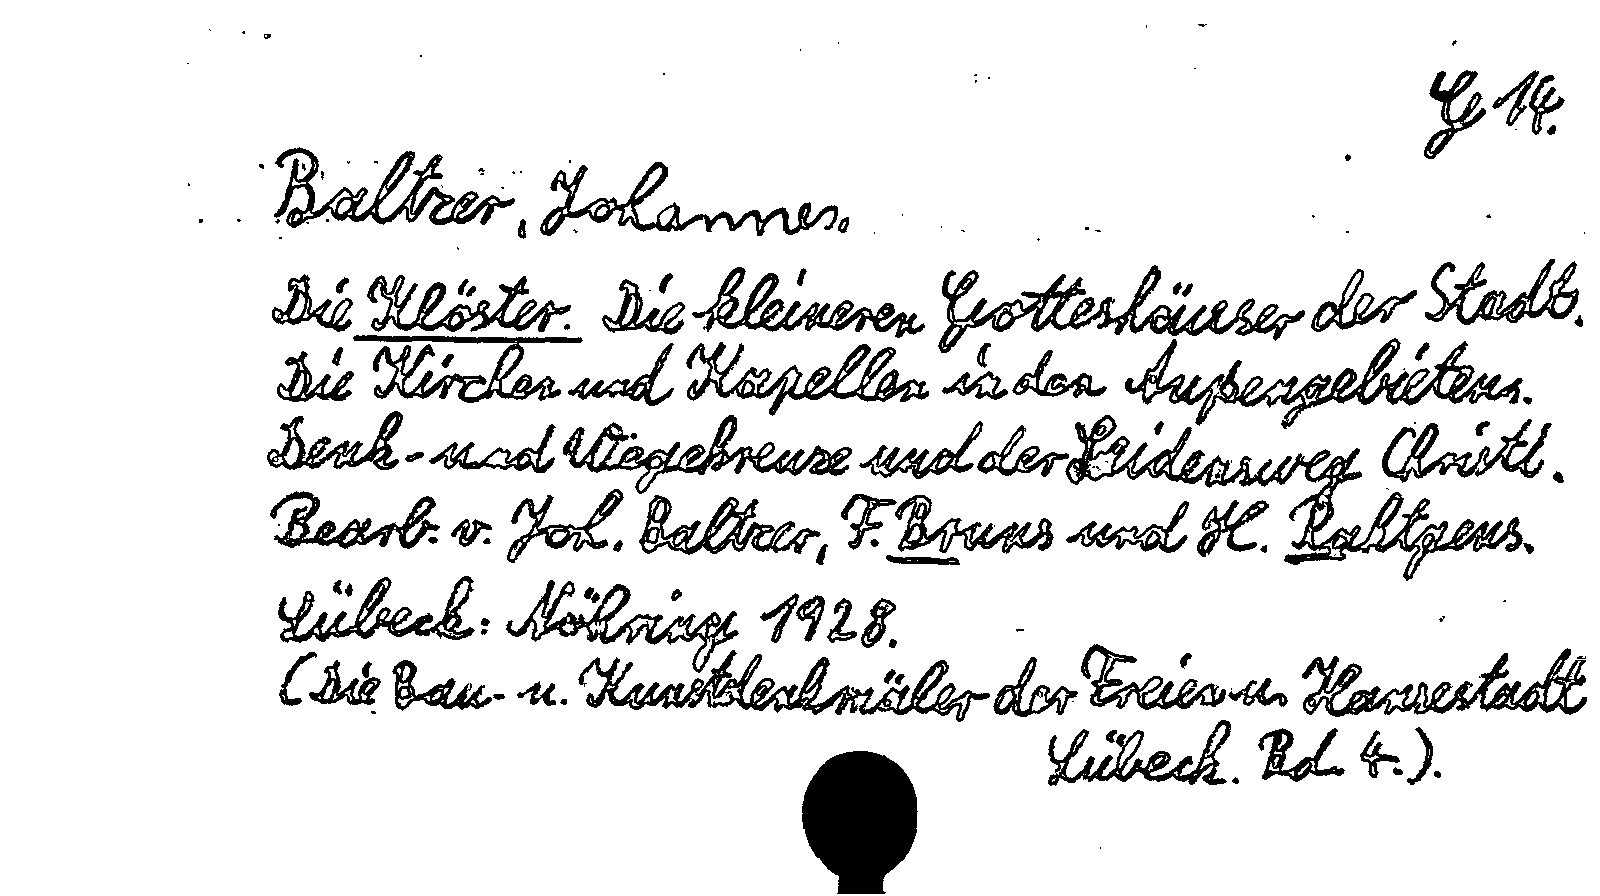 G 14.
Baltzer, Johannes.
Die Klöster. Die kleineren Gotteshäuser der Stadt.
Die Kirchen und Kapellen in den Außengebieten.
Denk- und Wegekreuze und der Leidensweg Christi.
Bearb. v. Joh. Baltzer, F. Bruns und H. Rahtgens.
Lübeck: Nöhring 1928.
(Die Bau- u. Kunstdenkmäler der Freien u. Hansestadt
Lübeck. Bd. 4.).